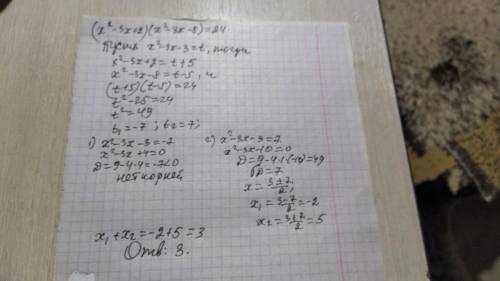 (x²-3x+2)(x²-3x-8)=24
Пусть x²-3x-3=t, тогда
x²-3x+2=t+5
x²-3x-8=t-5, и
(t+5)(t-5)=24
t²-25=24
t²=49
t₁=-7; t₂=7;
1) x²-3x-3=-7
x²-3x+4=0
D=9-4·4=-7<0
нет корней
2) x²-3x-3=7
x²-3x-10=0
D=9-4·1·(-10)=49
√D=7
x=3±7/2;
x₁=3-7/2=-2
x₂=3+7/2=5
x₁+x₂=-2+5=3
Отв: 3.